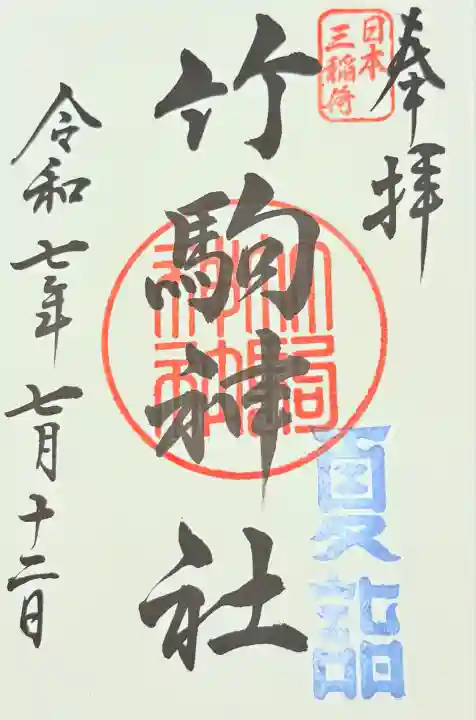 奉拝
日本
三稲荷
竹駒神社
竹駒
神社
夏詣
令和七年七月十二日